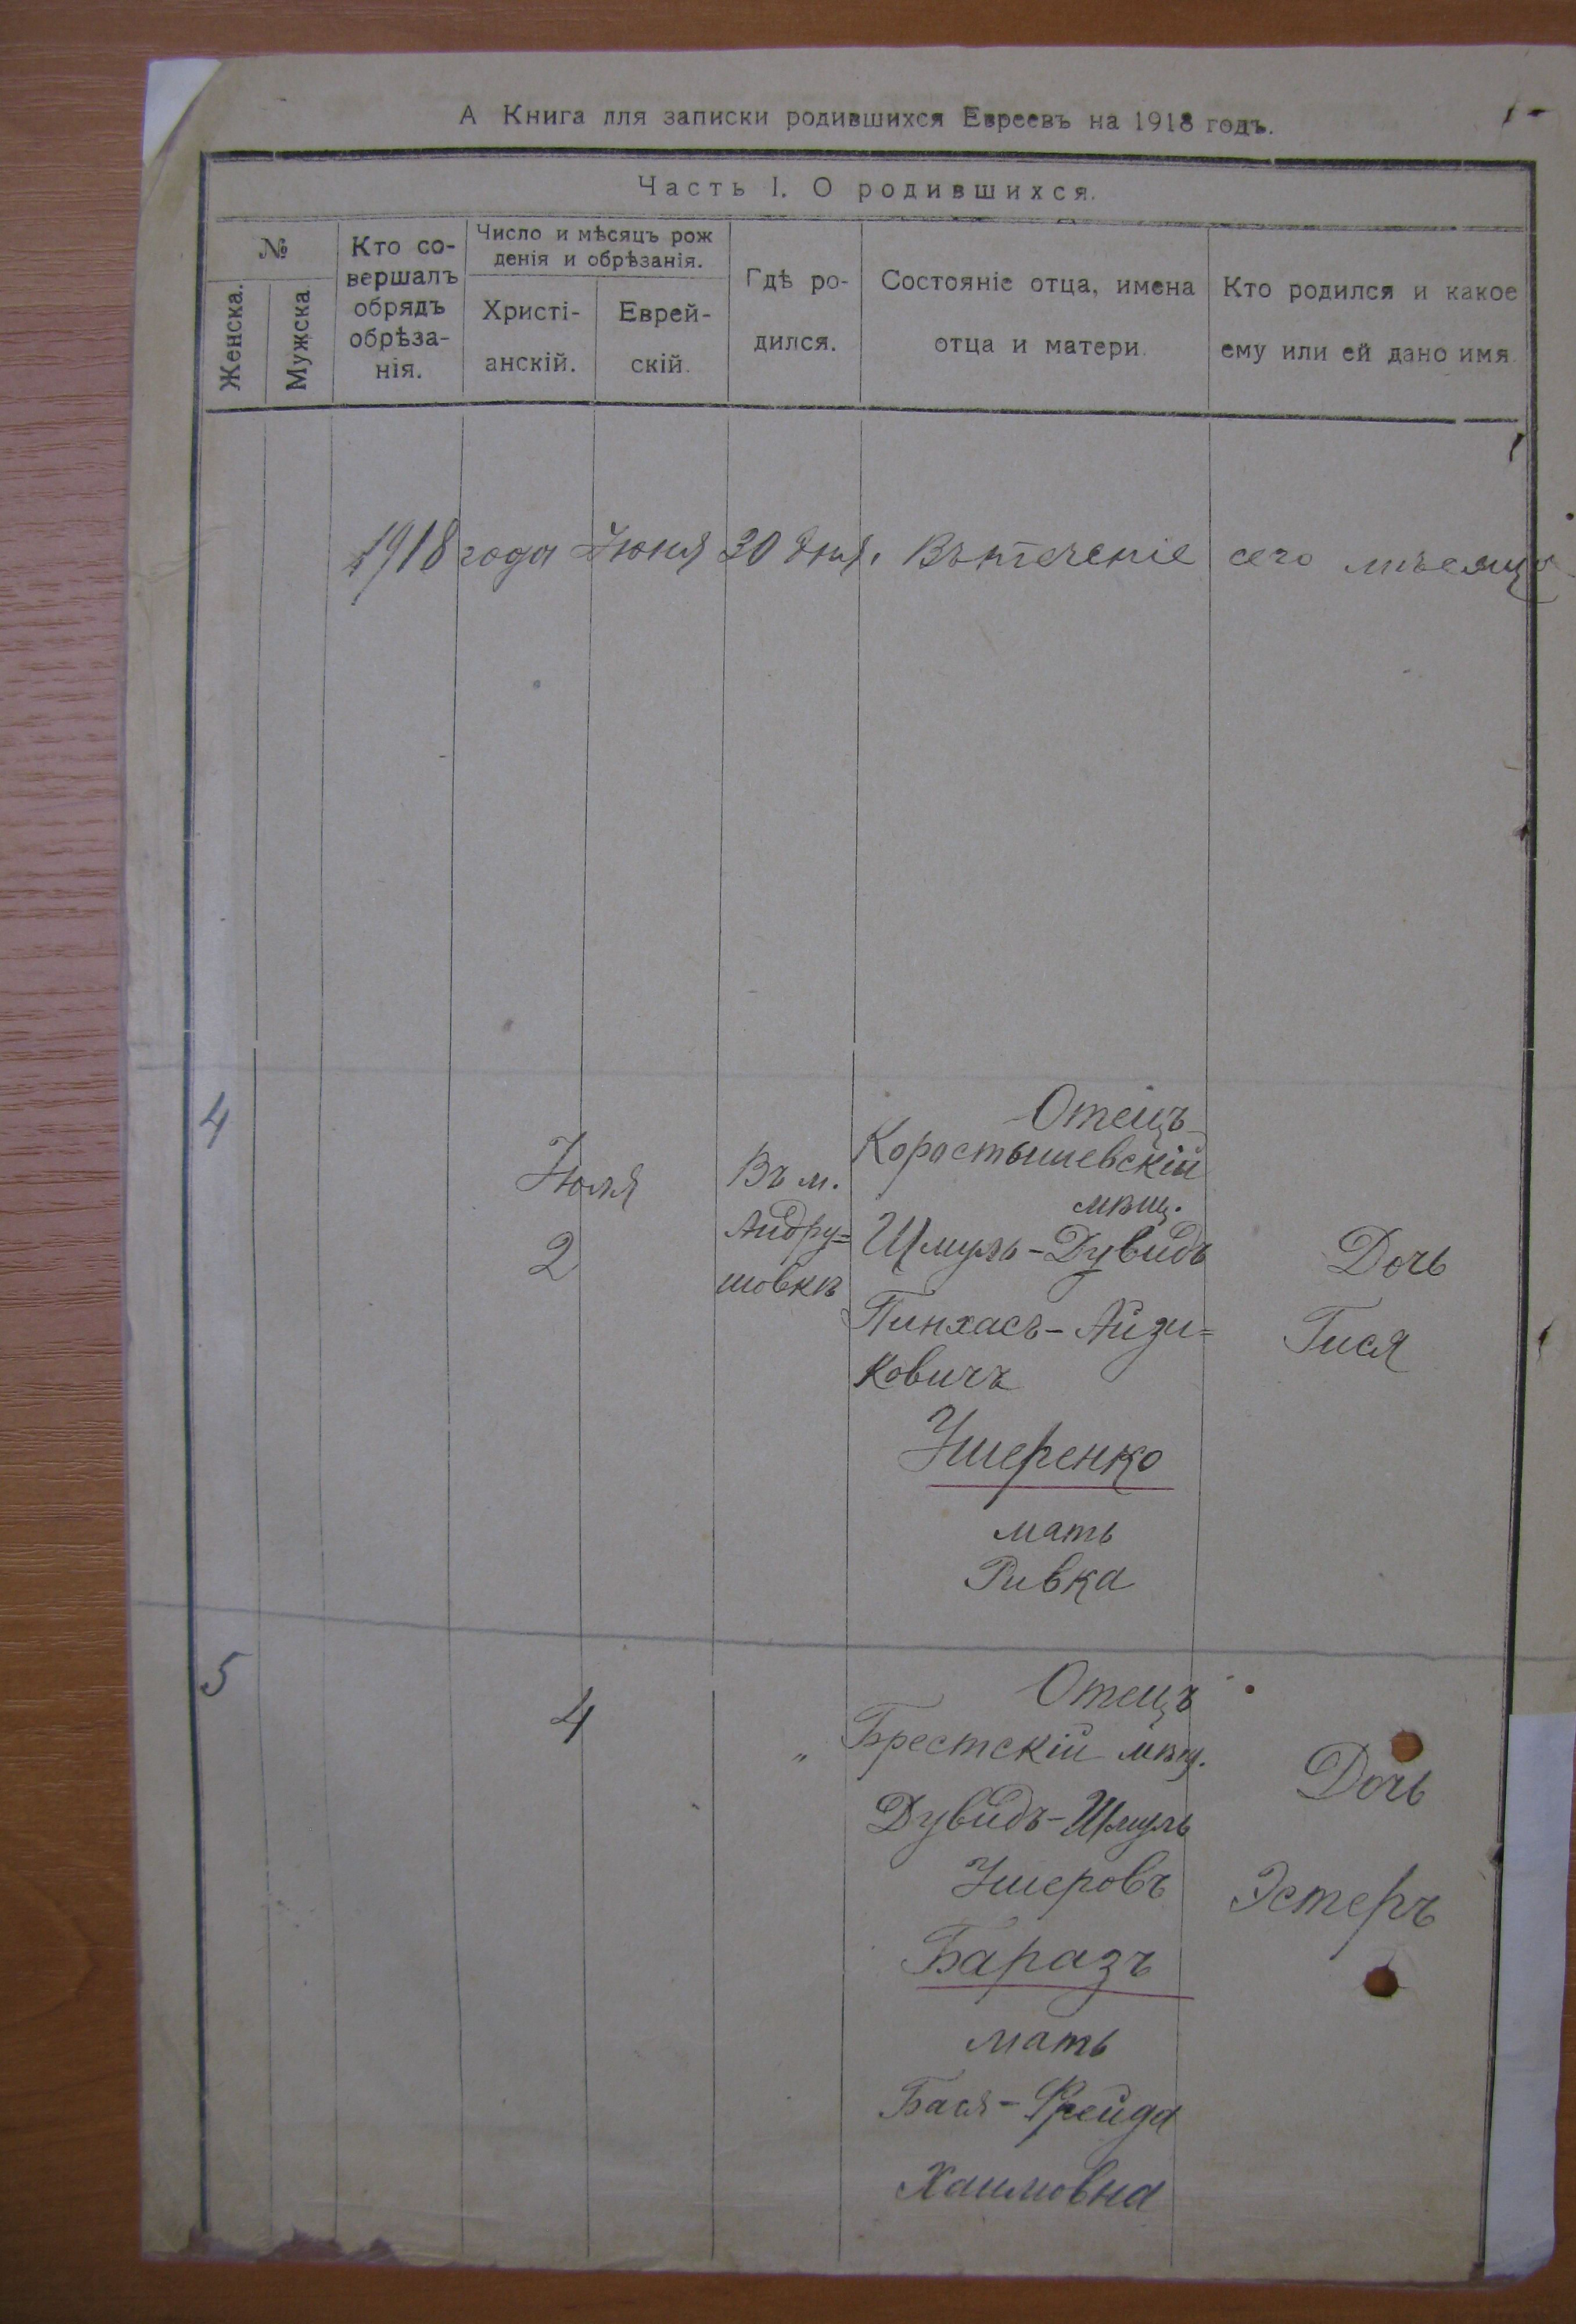 А Книга для записки родившихся Евреевъ на 1918 годъ.
Часть I. О родившихся.
№
Женска.
Мужска
Кто со-
вершалъ
обрядъ
обрѣза-
нія.
Число и мѣсяцъ рож
денія и обрѣзанія.
Христі-
анскій.
Еврей-
скій.
Гдѣ ро-
дился.
Состояніе отца, имена
отца и матери.
Кто родился и какое
ему или ей дано имя.
1918 года Іюня 30 дня. Въ теченіе сего мѣсяца
4
Іюля
2
Въ м.
Андру=
шовкѣ
Отецъ
Коростышевскій
мѣщ.
Шмуль-Дувидъ
Пинхасъ-Айзи=
ковичъ
Ушеренко
мать
Ривка
Дочь
Гися
5
4
"
Отецъ
Брестскій мѣщ.
Дувидъ-Шмуль
Ушеровъ
Баразъ
мать
Бася-Фрейда
Хаимовна
Дочь
Эстеръ